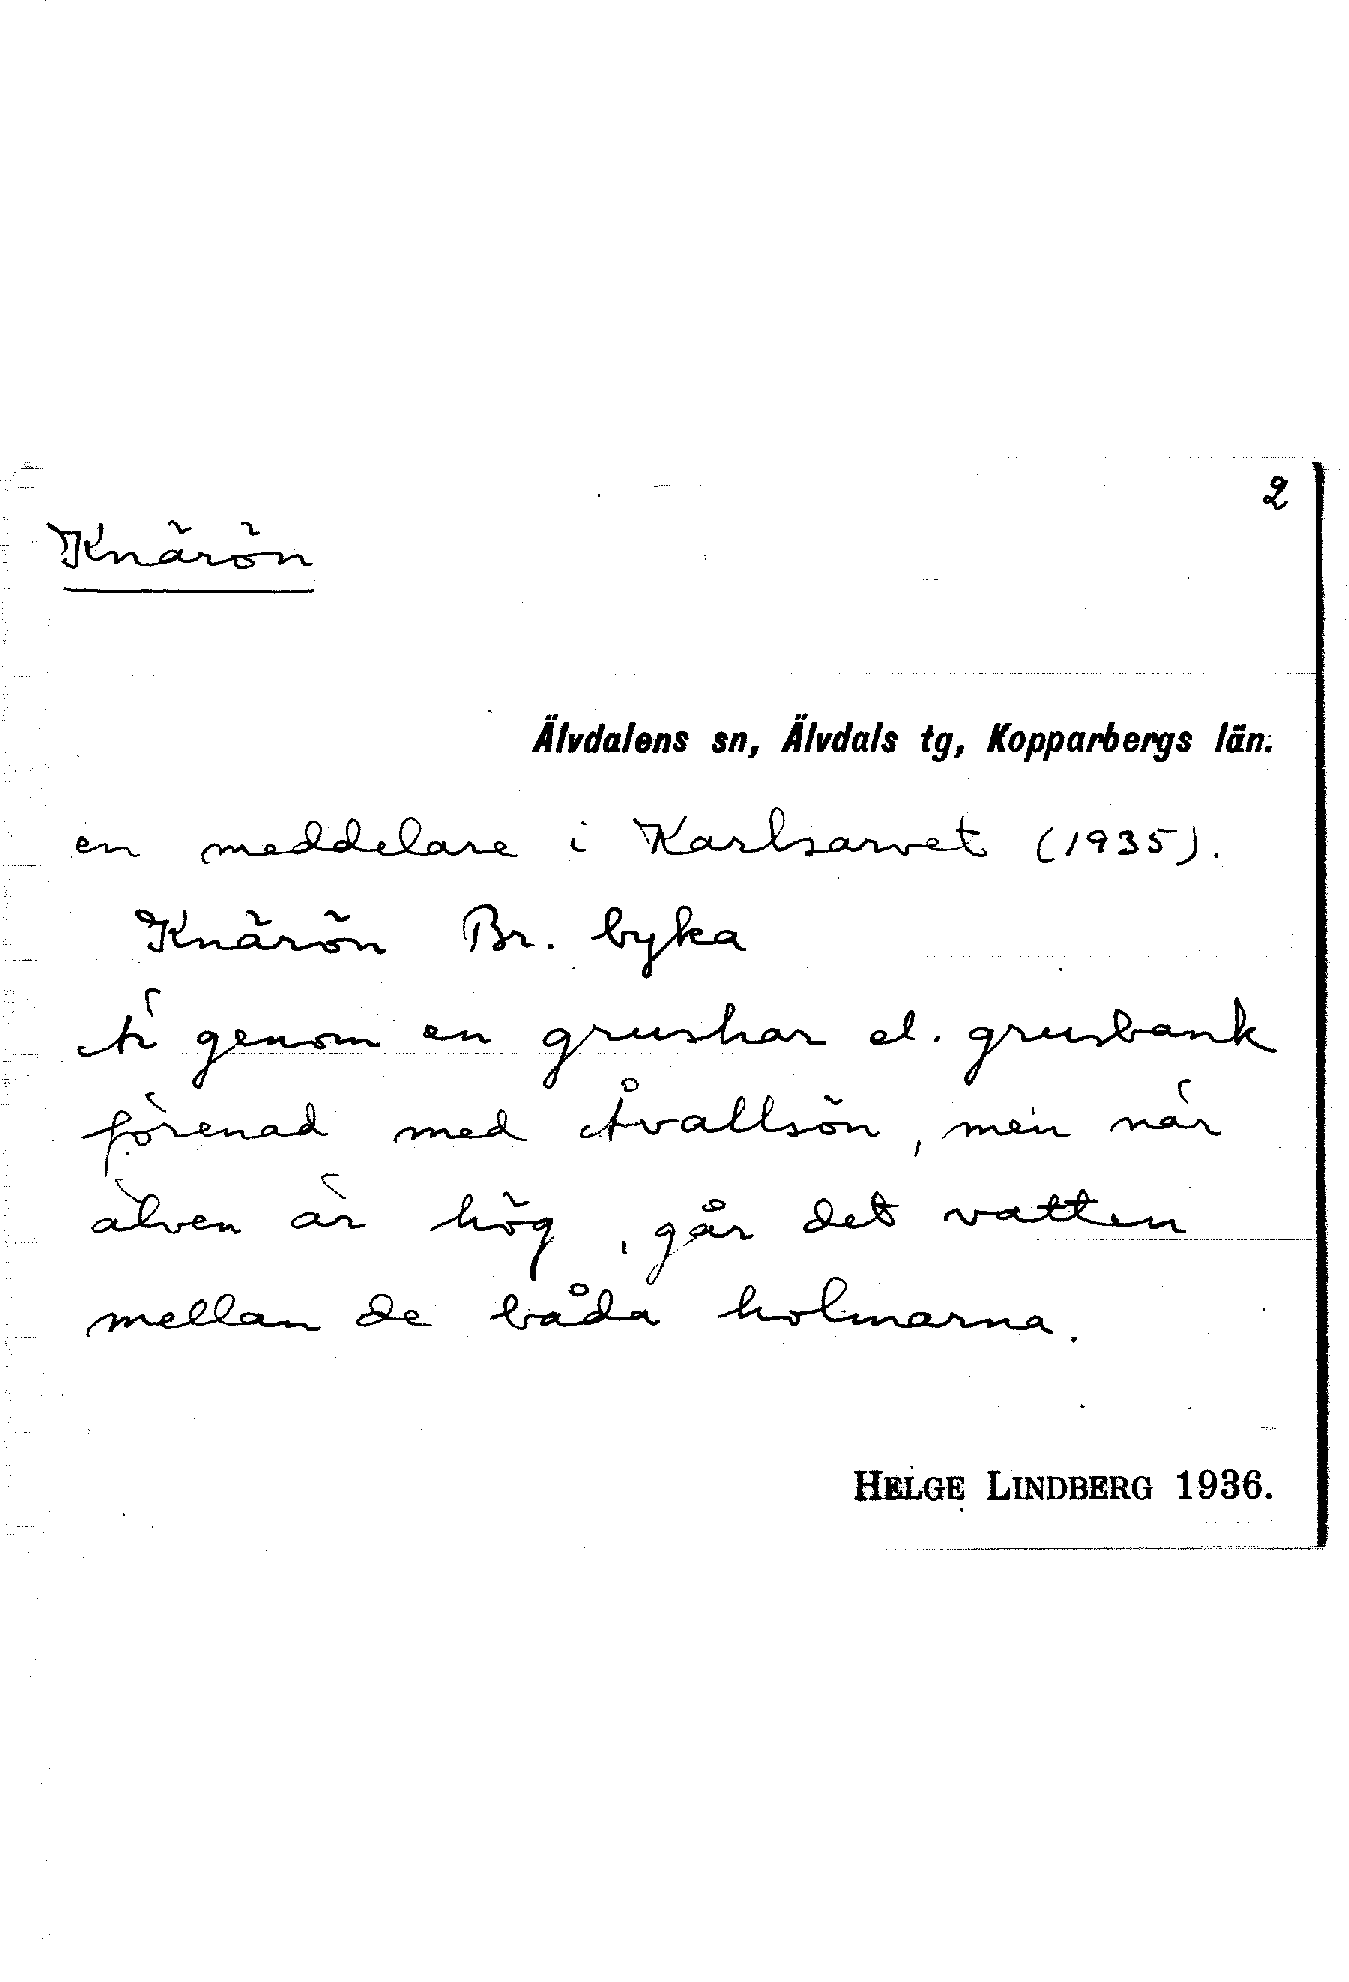 2
Knärön
Älvdalens sn, Älvdals tg, Kopparbergs län.
en meddelare i Karlsarvet (1935).
Knärön Br. byka
Är genom en grushar el. grusbank
förenad med Åvallsön, men när
älven är hög, går det vatten
mellan de båda holmarna.
HELGE LINDBERG 1936.